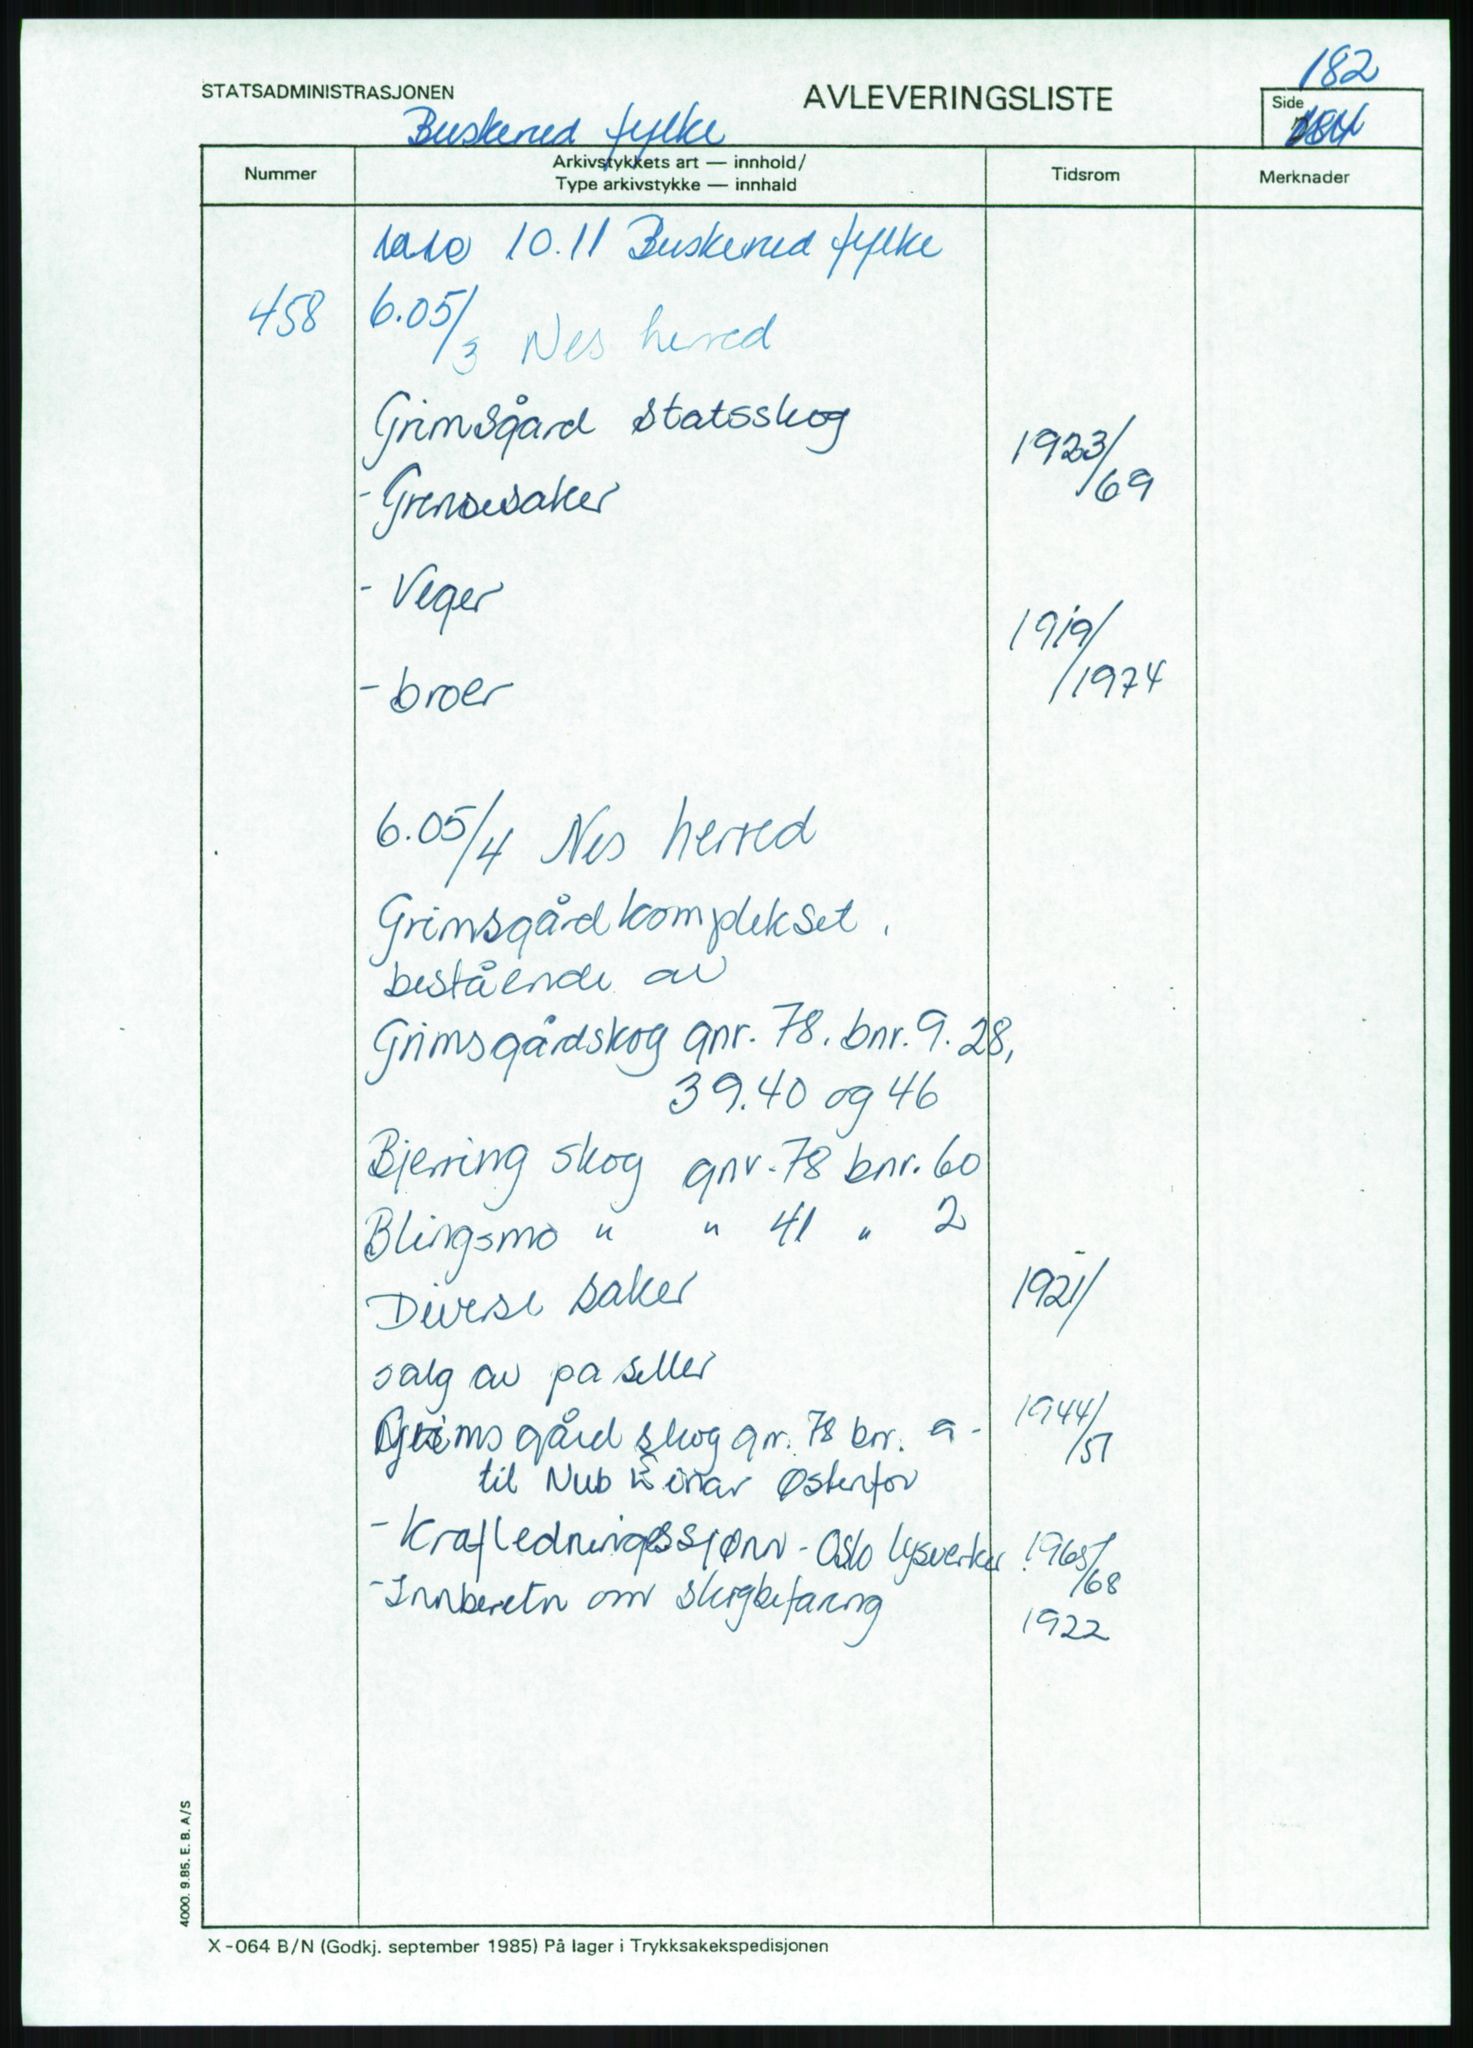 182
STATSADMINISTRASJONEN
AVLEVERINGSLISTE
Side
Buskerud fylke
Nummer
Arkivstykkets art — innhold/
Type arkivstykke — innhald
Tidsrom
Merknader
10.11 Buskerud fylke
458 6.05/3 Nes herred
Grimsgård statsskog
1923/69
- Grensesaker
- Veger
1919/1974
- broer
6.05/4 Nes herred
Grimsgårdkomplekset.
bestående av
Grimsgårdskog gnr. 78. bnr. 9. 28,
39. 40 og 46
Bjerring skog gnr. 78 bnr. 60
Blingsmo " " 41 " 2
Diverse saker 1921/
salg av paseller
Grimsgård skog gnr. 78 bnr. 9 - 1944/51
til Nub Einar Østenfor
- Krafledningsskjønn - Oslo lysverker 1965/68
- Innberetn om skogbefaring 1922
4000. 9.85. E. B. A/S
X-064 B/N (Godkj. september 1985) På lager i Trykksakekspedisjonen